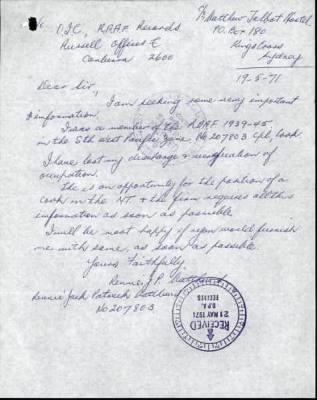 ℅ Matthew Talbot Hostel
P.O. Box 180
Kings Cross
Sydney
O.I.C., R.A.A.F Records
Russell Offices E
Canberra 2600
19-5-71
Dear Sir,
I am seeking some very important
information.
I was a member of the RAAF 1939-45,
in the Sth West Pacific Zone, No 207803 Cpl, Cook
I have lost my discharge & of
occupation.
the is an opportunity for the position of a
cook in the NT & the firm requires all this
information as soon as possible
I will be most happy if you would furnish
me with same, as soon as possible.
Yours Faithfully
Rennie J.P.
Rennie Jack Patrick
No 207803
RECEIVED
21 MAY 1971
R.P.A.
RECORDS